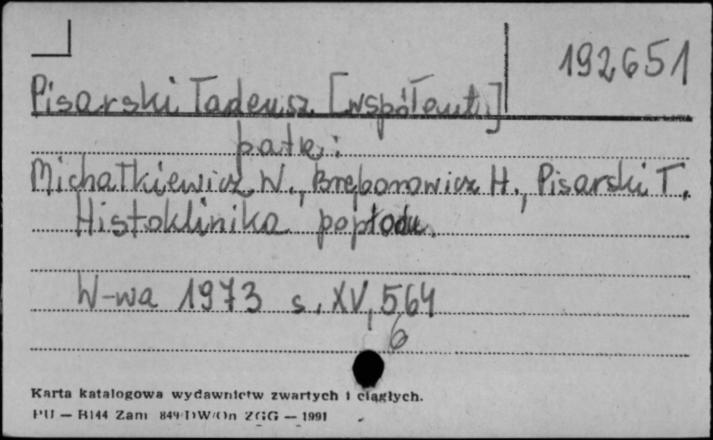 192651
Pisarski Tadeusz [współaut.]
patrz:
Michałkiewicz W., Bręborowicz H., Pisarski T.
Histoklinika popłodu.
W-wa 1973 s. XV, 564
6
Karta katalogowa wydawnictw zwartych i ciągłych.
PU — B144 Zam 849/DW/On ZGG — 1991